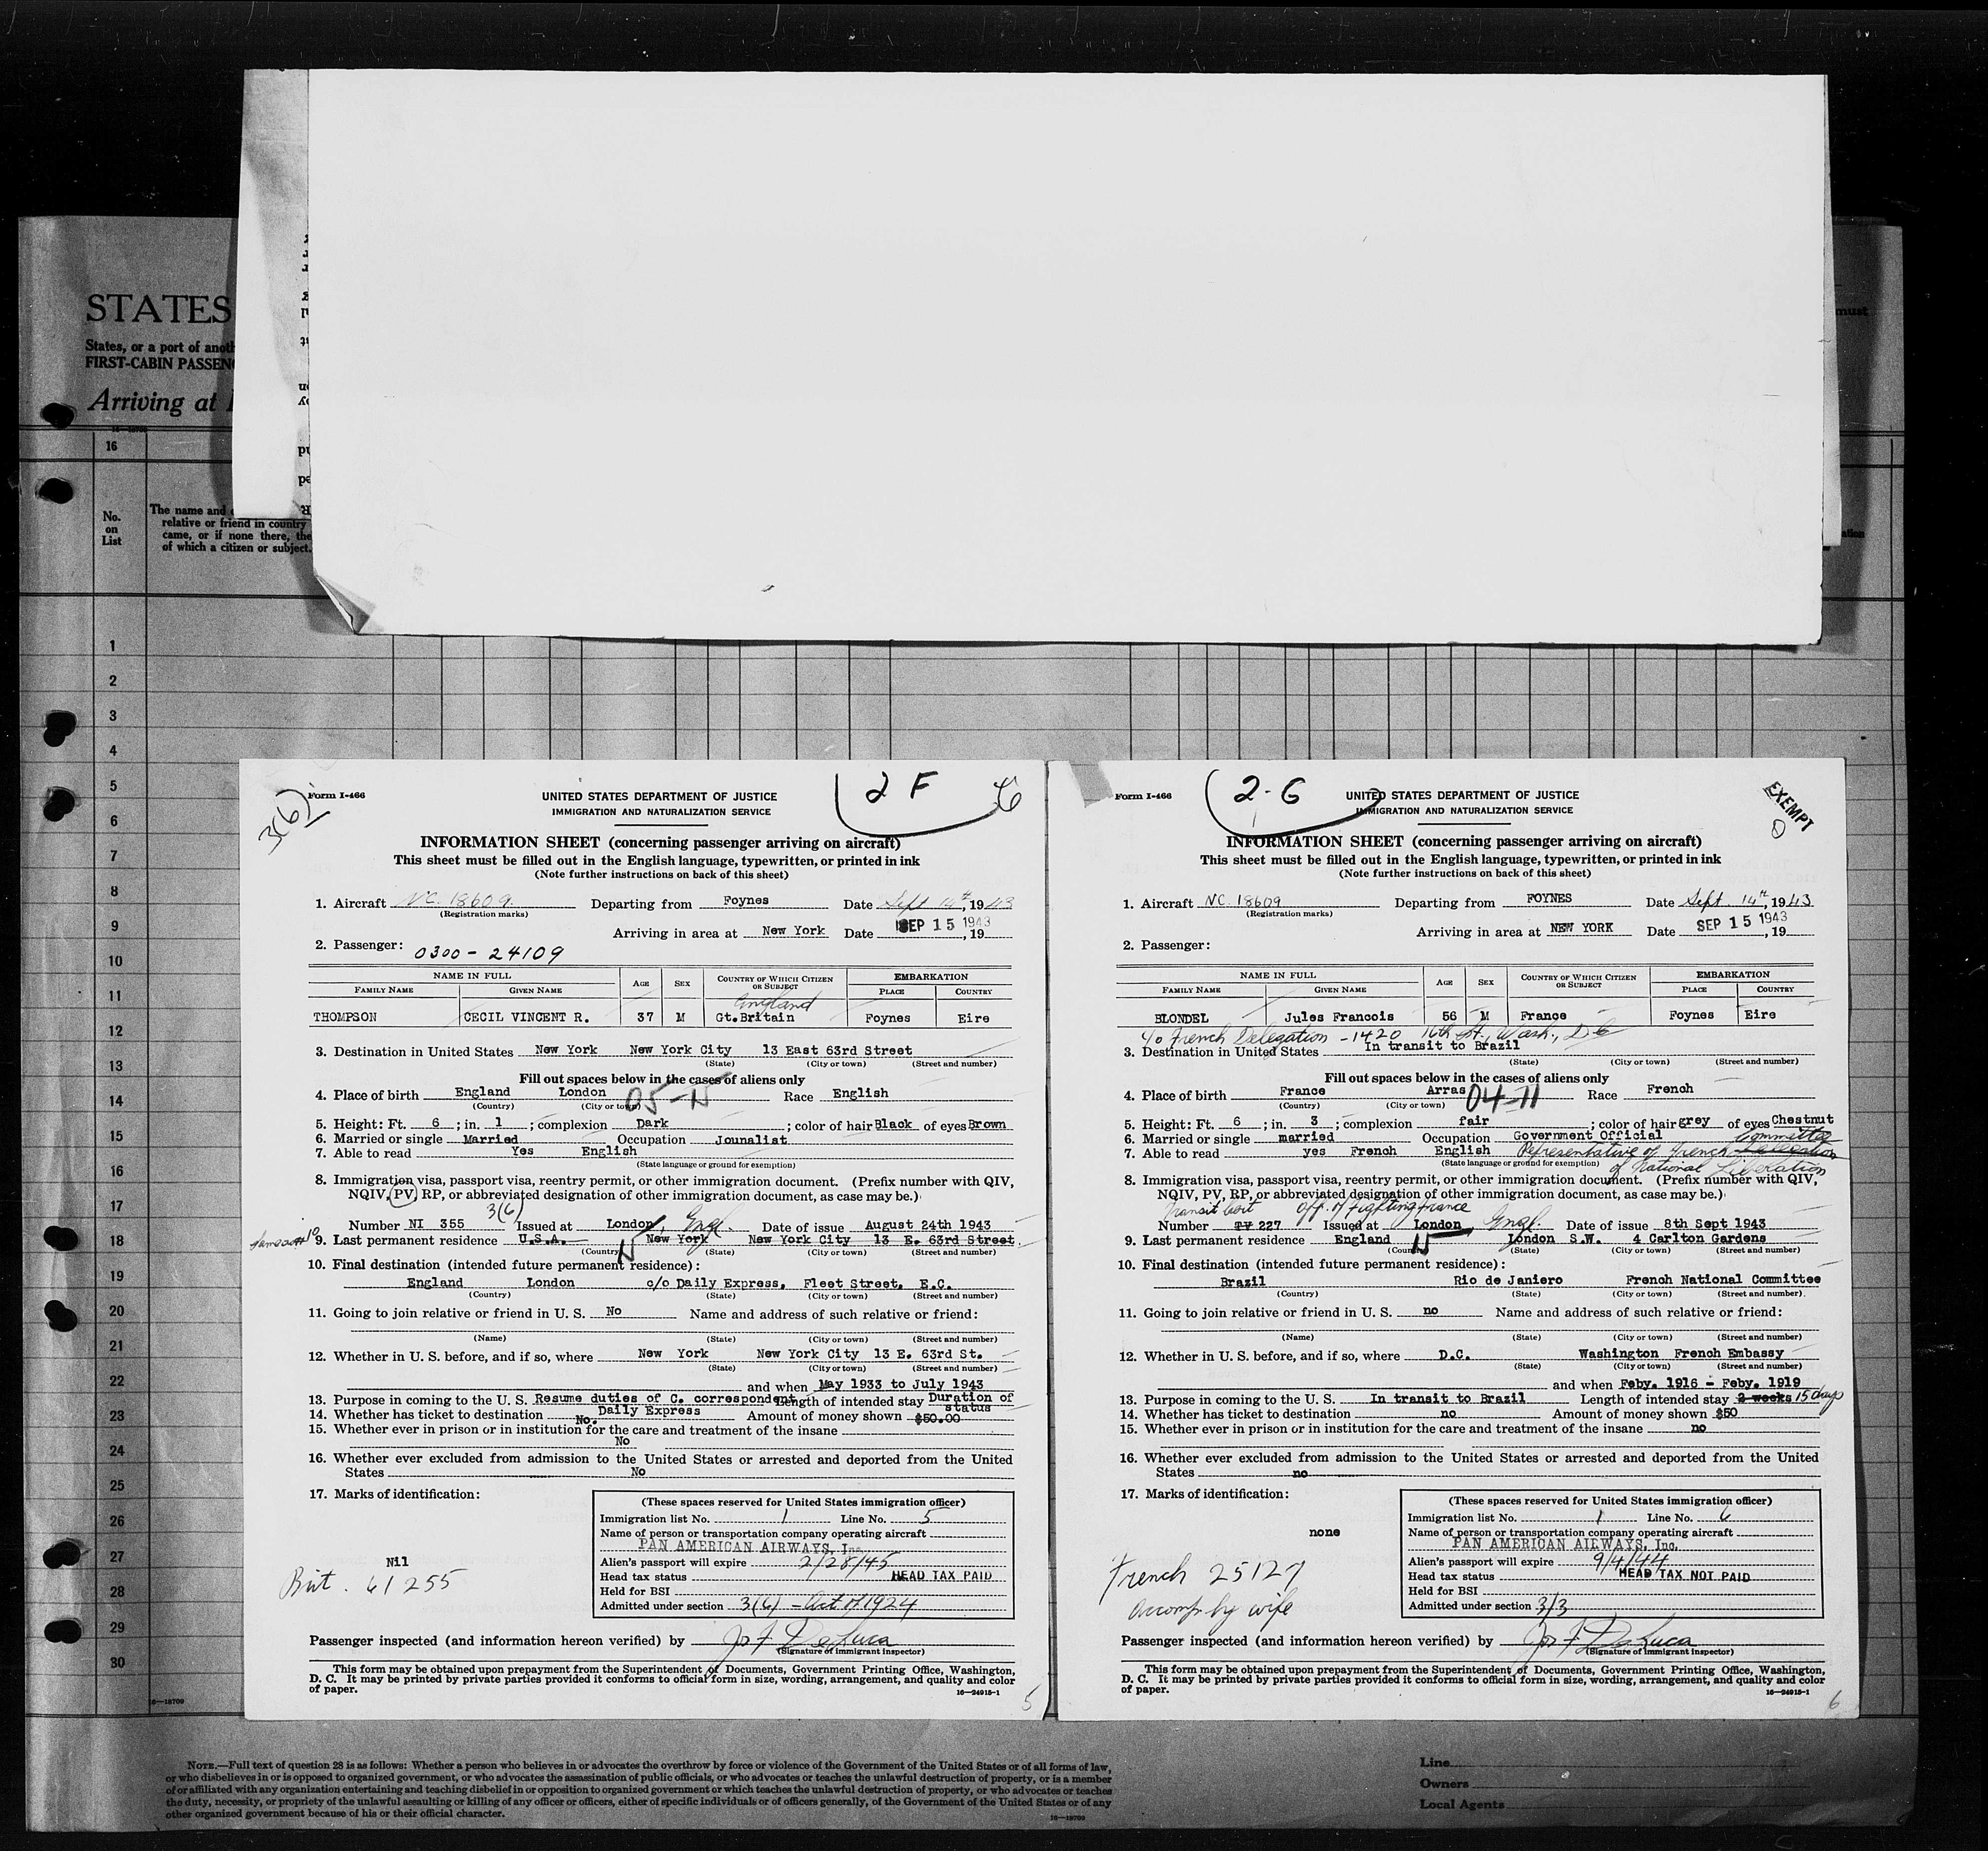 STATES
States, or a port of anoth
FIRST-CABIN PASSEN
Arriving at
16
No.
on
List
The name and
relative or friend in country
came, or if none there, the
of which a citizen or subject.
must
ation
1
2
3
4
5
6
7
8
9
10
11
12
13
14
15
16
17
18
19
20
21
22
23
24
25
26
27
28
29
30
16—18709
3(6)
Form I-466
2 F
6
UNITED STATES DEPARTMENT OF JUSTICE
IMMIGRATION AND NATURALIZATION SERVICE
INFORMATION SHEET (concerning passenger arriving on aircraft)
This sheet must be filled out in the English language, typewritten, or printed in ink
(Note further instructions on back of this sheet)
1. Aircraft NC. 18609. Departing from Foynes Date Sept 14th, 1943
(Registration marks)
Arriving in area at New York Date SEP 15 1943, 19
2. Passenger: 0300-24109
NAME IN FULL AGE SEX COUNTRY OF WHICH CITIZEN OR SUBJECT EMBARKATION
FAMILY NAME GIVEN NAME PLACE COUNTRY
England
THOMPSON CECIL VINCENT R. 37 M Gt.Britain Foynes Eire
3. Destination in United States New York New York City 13 East 63rd Street
(State) (City or town) (Street and number)
Fill out spaces below in the cases of aliens only
4. Place of birth England London 05-15 Race English
(Country) (City or town)
5. Height: Ft. 6 ; in. 1 ; complexion Dark ; color of hair Black of eyes Brown
6. Married or single Married Occupation Jounalist
7. Able to read Yes English
(State language or ground for exemption)
8. Immigration visa, passport visa, reentry permit, or other immigration document. (Prefix number with QIV,
NQIV, PV, RP, or abbreviated designation of other immigration document, as case may be.)
3(6)
Number NI 355 Issued at London, Engl. Date of issue August 24th 1943
9. Last permanent residence U.S.A. New York New York City 13 E. 63rd Street.
(Country) (State) (City or town) (Street and number)
10. Final destination (intended future permanent residence):
England London c/o Daily Express, Fleet Street, E.C.
(Country) (State) (City or town) (Street and number)
11. Going to join relative or friend in U. S. No Name and address of such relative or friend:
(Name) (State) (City or town) (Street and number)
12. Whether in U. S. before, and if so, where New York New York City 13 E. 63rd St.
(State) (City or town) (Street and number)
and when May 1933 to July 1943
13. Purpose in coming to the U. S. Resume duties of C. correspondent Length of intended stay Duration of
Daily Express status
14. Whether has ticket to destination No. Amount of money shown $50.00
15. Whether ever in prison or in institution for the care and treatment of the insane
No
16. Whether ever excluded from admission to the United States or arrested and deported from the United
States No
17. Marks of identification:
Nil
Brit. 61255
(These spaces reserved for United States immigration officer)
Immigration list No. 1 Line No. 5
Name of person or transportation company operating aircraft
PAN AMERICAN AIRWAYS, Inc.
Alien's passport will expire 2/28/45
Head tax status HEAD TAX PAID
Held for BSI
Admitted under section 3(6) - Act of 1924
Passenger inspected (and information hereon verified) by Jos F. DeLuca
(Signature of immigrant inspector)
This form may be obtained upon prepayment from the Superintendent of Documents, Government Printing Office, Washington,
D. C. It may be printed by private parties provided it conforms to official form in size, wording, arrangement, and quality and color
of paper.
16—24915-1
5
Form I-466
2-G
EXEMPT
0
UNITED STATES DEPARTMENT OF JUSTICE
IMMIGRATION AND NATURALIZATION SERVICE
INFORMATION SHEET (concerning passenger arriving on aircraft)
This sheet must be filled out in the English language, typewritten, or printed in ink
(Note further instructions on back of this sheet)
1. Aircraft NC. 18609 Departing from FOYNES Date Sept. 14th, 1943
(Registration marks)
Arriving in area at NEW YORK Date SEP 15 1943, 19
2. Passenger:
NAME IN FULL AGE SEX COUNTRY OF WHICH CITIZEN OR SUBJECT EMBARKATION
FAMILY NAME GIVEN NAME PLACE COUNTRY
BLONDEL Jules Francois 56 M France Foynes Eire
c/o French Delegation - 1420 16th St., Wash., D.C.
3. Destination in United States In transit to Brazil
(State) (City or town) (Street and number)
Fill out spaces below in the cases of aliens only
4. Place of birth France Arras 04-11 Race French
(Country) (City or town)
5. Height: Ft. 6 ; in. 3 ; complexion fair ; color of hair grey of eyes Chestnut
6. Married or single married Occupation Government Official
Committee
7. Able to read yes French English Representative of French Delegation
(State language or ground for exemption) of National Liberation
8. Immigration visa, passport visa, reentry permit, or other immigration document. (Prefix number with QIV,
NQIV, PV, RP, or abbreviated designation of other immigration document, as case may be.)
Transit Cert Off. of Fighting France
Number TV 227 Issued at London Engl. Date of issue 8th Sept 1943
9. Last permanent residence England London S.W. 4 Carlton Gardens
(Country) (State) (City or town) (Street and number)
10. Final destination (intended future permanent residence):
Brazil Rio de Janiero French National Committee
(Country) (State) (City or town) (Street and number).
11. Going to join relative or friend in U. S. no Name and address of such relative or friend:
(Name) (State) (City or town) (Street and number)
12. Whether in U. S. before, and if so, where D.C. Washington French Embassy
(State) (City or town) (Street and number)
and when Feby. 1916 - Feby. 1919
13. Purpose in coming to the U. S. In transit to Brazil Length of intended stay 2 weeks 15 days
14. Whether has ticket to destination no Amount of money shown $50
15. Whether ever in prison or in institution for the care and treatment of the insane no
16. Whether ever excluded from admission to the United States or arrested and deported from the United
States no
17. Marks of identification:
none
French 25127
Accomp. by wife
(These spaces reserved for United States immigration officer)
Immigration list No. 1 Line No. 6
Name of person or transportation company operating aircraft
PAN AMERICAN AIRWAYS, Inc.
Alien's passport will expire 9/4/44
Head tax status HEAD TAX NOT PAID
Held for BSI
Admitted under section 3/3
Passenger inspected (and information hereon verified) by Jos F. DeLuca
(Signature of immigrant inspector)
This form may be obtained upon prepayment from the Superintendent of Documents, Government Printing Office, Washington,
D. C. It may be printed by private parties provided it conforms to official form in size, wording, arrangement, and quality and color
of paper.
16—24915-1
6
NOTE.—Full text of question 28 is as follows: Whether a person who believes in or advocates the overthrow by force or violence of the Government of the United States or of all forms of law,
or who disbelieves in or is opposed to organized government, or who advocates the assassination of public officials, or who advocates or teaches the unlawful destruction of property, or is a member
of or affiliated with any organization entertaining and teaching disbelief in or opposition to organized government or which teaches the unlawful destruction of property, or who advocates or teaches
the duty, necessity, or propriety of the unlawful assaulting or killing of any officer or officers, either of specific individuals or of officers generally, of the Government of the United States or of any
other organized government because of his or their official character.
16—18709
Line
Owners
Local Agents